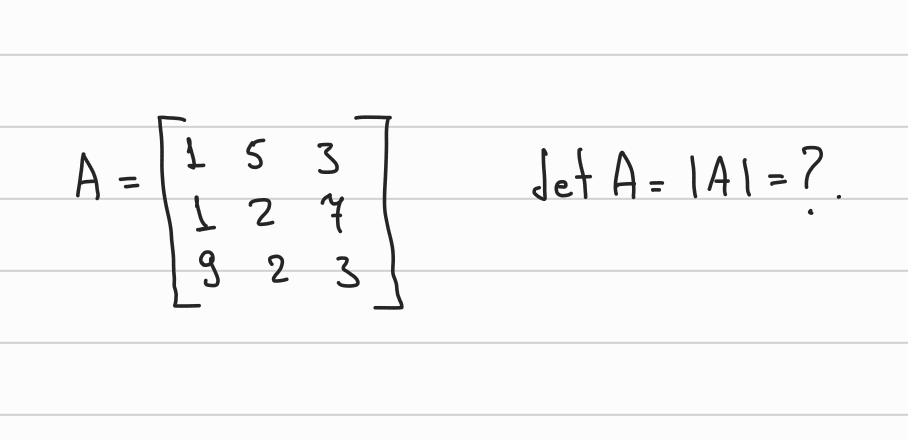 A = [1 5 3
1 2 7
9 2 3] det A = |A| = ?.